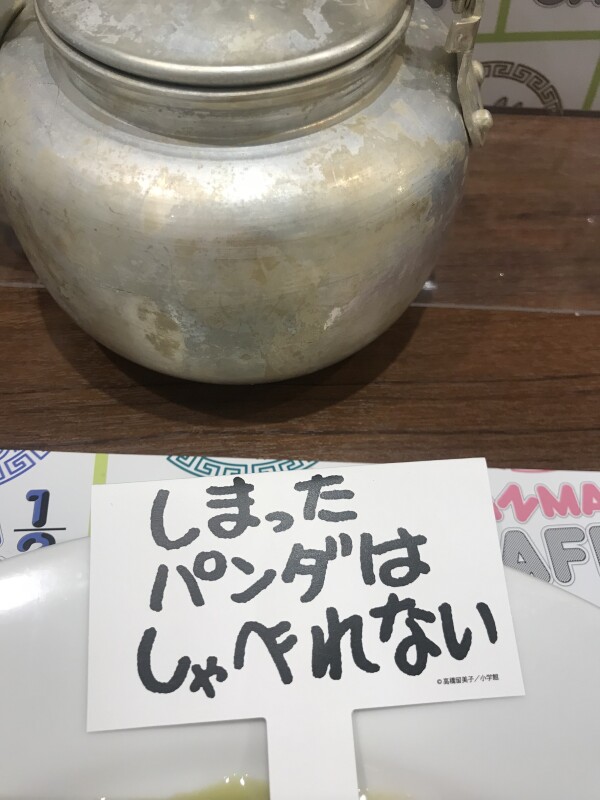 しまった
パンダは
しゃべれない
©高橋留美子／小学館
1
2
MA
AF